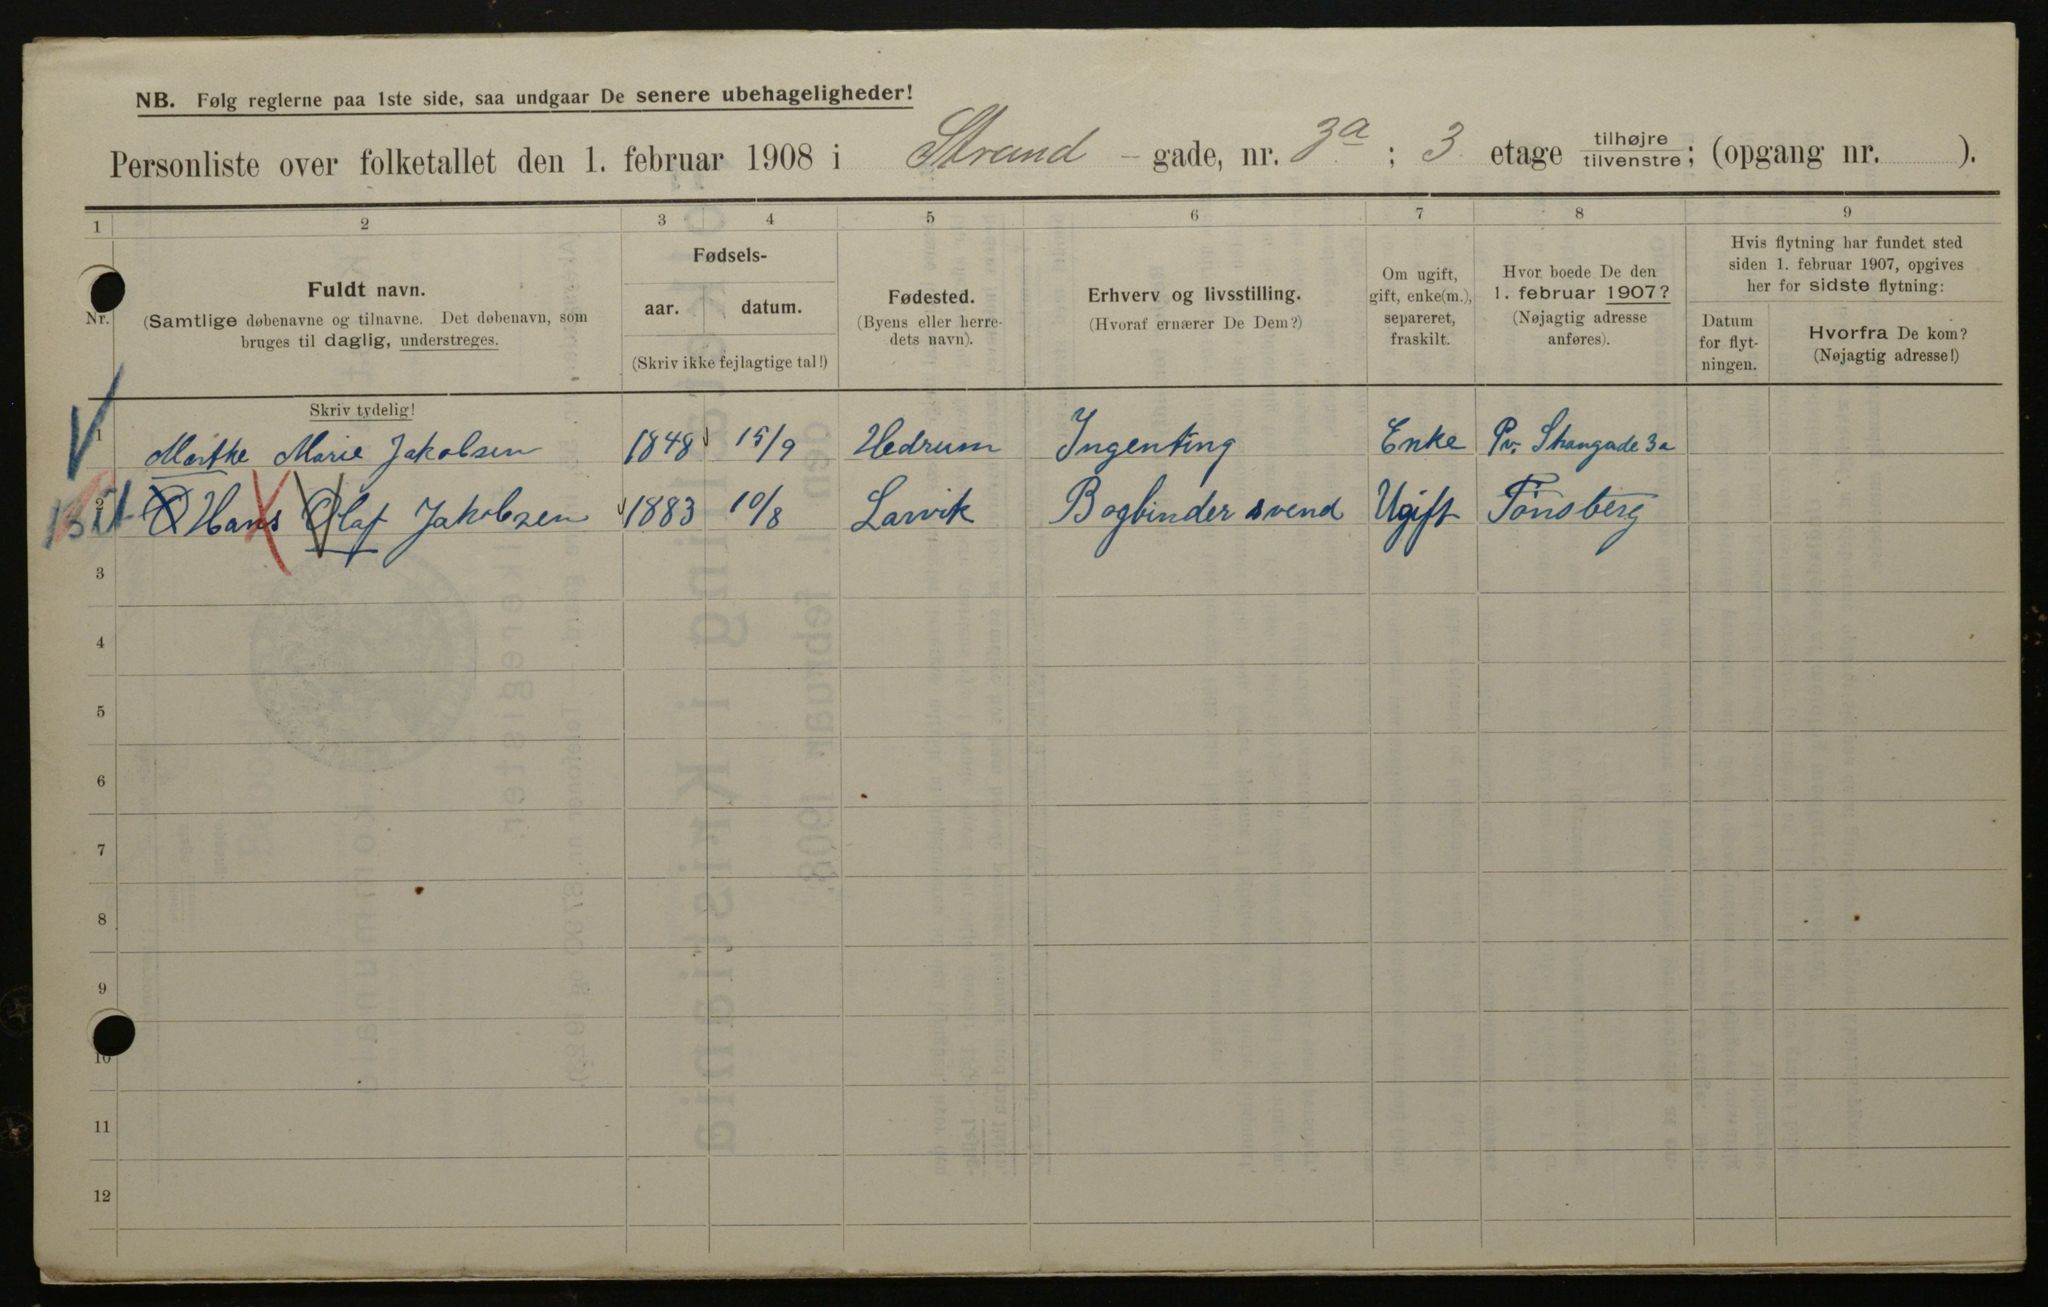 NB. Følg reglerne paa 1ste side, saa undgaar De senere ubehageligheder!
Personliste over folketallet den 1. februar 1908 i Strand - gade, nr. 3a ; 3 etage tilhøjre tilvenstre ; (opgang nr. ).
1 2 3 4 5 6 7 8 9
Nr.
Fuldt navn.
(Samtlige døbenavne og tilnavne. Det døbenavn, som
bruges til daglig, understreges.
Fødsels-
aar. datum.
(Skriv ikke fejlagtige tal!)
Fødested.
(Byens eller herre-
dets navn).
Erhverv og livsstilling.
(Hvoraf ernærer De Dem?)
Om ugift,
gift, enke(m.),
separeret,
fraskilt.
Hvor boede De den
1. februar 1907?
(Nøjagtig adresse
anføres).
Hvis flytning har fundet sted
siden 1. februar 1907, opgives
her for sidste flytning:
Datum
for flyt-
ningen.
Hvorfra De kom?
(Nøjagtig adresse!)
Skriv tydelig!
1 Marthe Marie Jakobsen 1848 15/9 Hedrum Ingenting Enke Pv. Strangade 3a
2 Hans Olaf Jakobsen 1883 10/8 Larvik Bogbinder svend Ugift Tönsberg
3
4
5
6
7
8
9
10
11
12